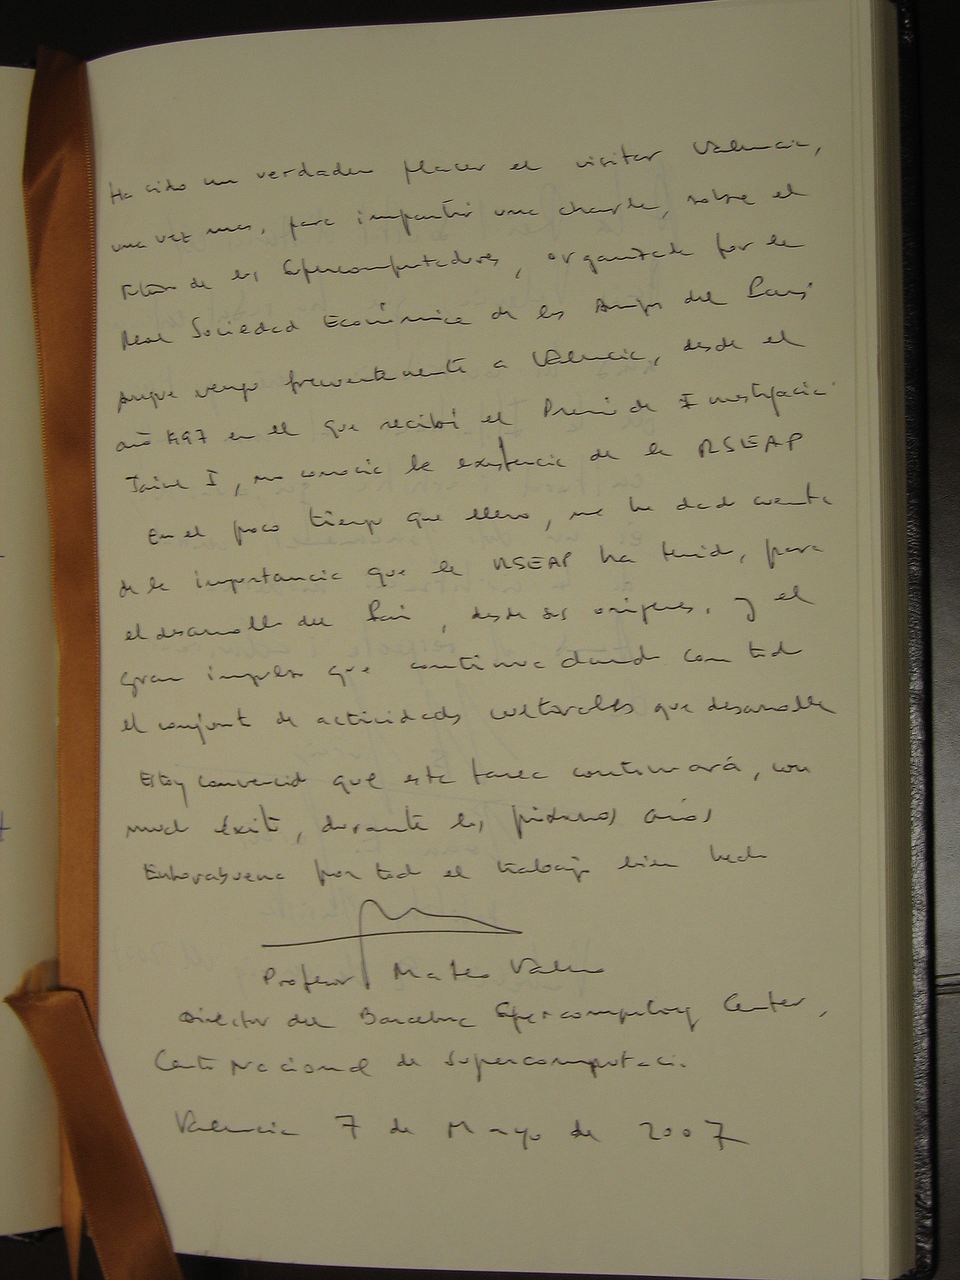 Ha sido un verdadero placer el visitar Valencia,
una vez mas, para impartir una charla, sobre el
futuro de los Supercomputadores, organizada por la
Real Sociedad Económica de los Amigos del País
Aunque vengo frecuentemente a Valencia, desde el
año 1997 en el que recibí el Premio de Investigación
Jaime I, no conocia la existencia de la RSEAP
En el poco tiempo que llevo, me he dado cuenta
de la importancia que la RSEAP ha tenido, para
el desarrollo del País, desde sus origenes, y el
gran impulso que continua dando con todo
el conjunto de actividades culturales que desarrolla
Estoy convencido que esta tarea continuará, con
mucho éxito, durante los próximos años
Enhorabuena por todo el trabajo bien hecho
Profesor Mateo Valero
Director del Barcelona Supercomputing Center,
Centro Nacional de Supercomputación.
Valencia 7 de Mayo de 2007